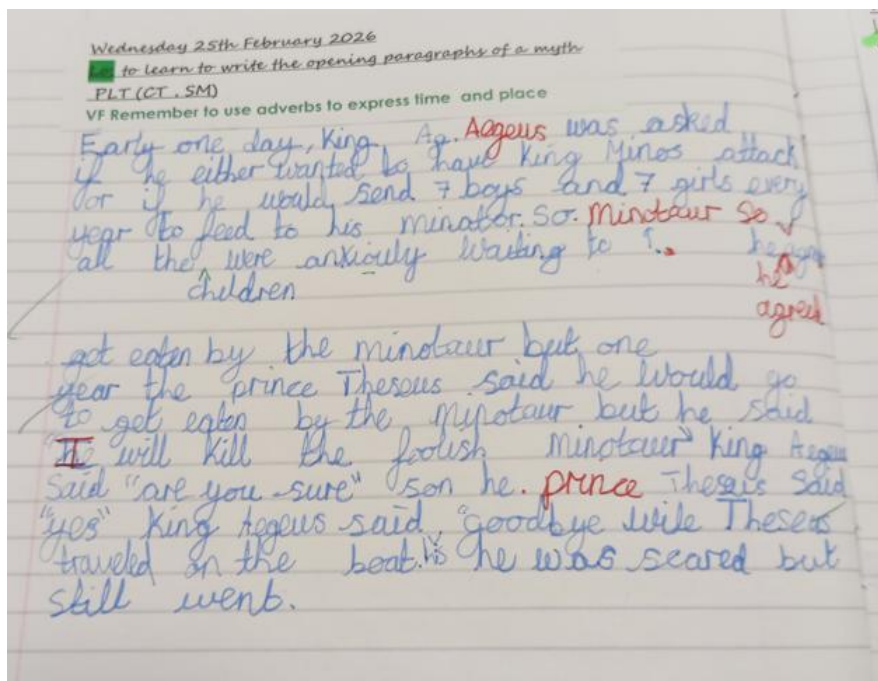 Wednesday 25th February 2026
Lo: to learn to write the opening paragraphs of a myth
PLT (CT , SM)
VF Remember to use adverbs to express time and place
Early one day, King Ag. Aegeus was asked
if he either wanted to have King Minos attack
or if he would send 7 boys and 7 girls every
year to feed to his minator. So. Minotaur so
all the were anxiouly waiting to
he agre
he
children
agreed
got eaten by the minotaur but one
year the prince Theseus said he would go
to get eaten by the minotaur but he said
"I will kill the foolish minotaur" King Aegeus
said "are you sure" son he. prince Theseus said
"yes" King Aegeus said "goodbye wile Theseus
traveled on the boat. his he was scared but
still went.